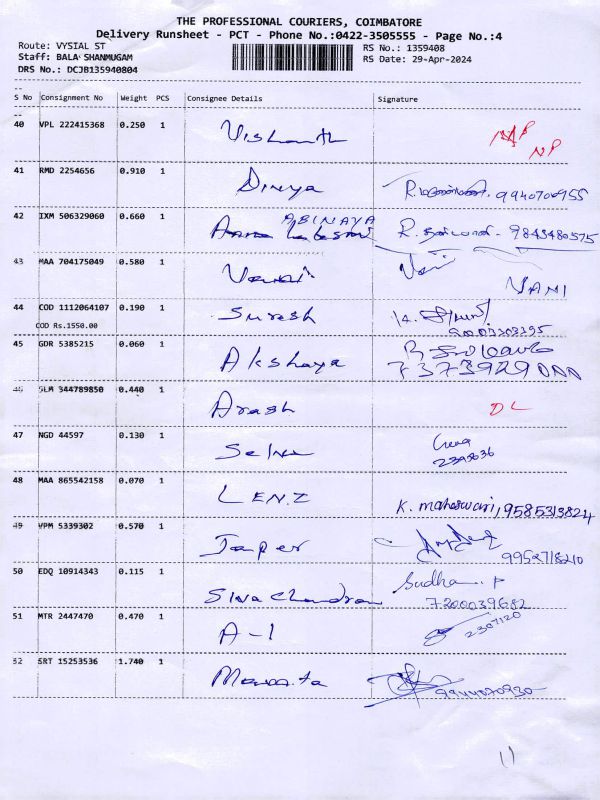 THE PROFESSIONAL COURIERS, COIMBATORE
Delivery Runsheet - PCT - Phone No.:0422-3505555 - Page No.:4
Route: VYSIAL ST
RS No.: 1359408
Staff: BALA SHANMUGAM
RS Date: 29-Apr-2024
DRS No.: DCJB135940804
S No Consignment No Weight PCS Consignee Details Signature
40 VPL 222415368 0.250 1 Vishanth NP
41 RMD 2254656 0.910 1 Divya 9940700955
ABINAYA
42 IXM 506329060 0.660 1 9843480575
43 MAA 704175049 0.580 1 VANI
44 COD 1112064107 0.190 1 Suresh
COD Rs.1550.00
45 GDR 5385215 0.060 1 Akshaya
46 SLM 344789850 0.440 1 Arash DL
47 NGD 44597 0.130 1 Selva
48 MAA 865542158 0.070 1 LENZ K. maheswari, 9585313824
49 VPM 5339302 0.570 1 Japer 9952718210
50 EDQ 10914343 0.115 1 Siva Chandran Sudha
7200039682
51 MTR 2447470 0.470 1 A-1 2307120
52 SRT 15253536 1.740 1 9944070930
11